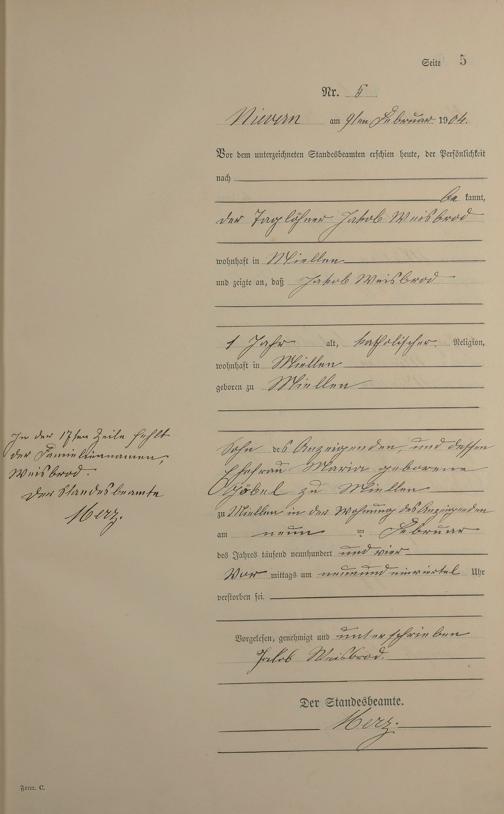 Seite 5
Nr. 5
Nievern am 9ten Februar 1904.
Vor dem unterzeichneten Standesbeamten erschien heute, der Persönlichkeit
nach
be kannt,
der Taglöhner Jakob Weisbrod
wohnhaft in Miellen
und zeigte an, daß Jakob Weisbrod
1 Jahr alt, katholischer Religion,
wohnhaft in Miellen
geboren zu Miellen
Sohn des Anzeigenden, und dessen
Ehefrau Maria geborene
Göbel zu Miellen
zu Miellen in der Wohnung des Anzeigenden
am neun ten Februar
des Jahres tausend neunhundert und vier
Vor mittags um neunundeinviertel Uhr
verstorben sei.
Vorgelesen, genehmigt und unterschrieben
Jakob Weisbrod.
Der Standesbeamte.
Merz.
In der 17ten Zeile fehlt
der Familiennamen,
Weisbrod.
Der Standesbeamte
Merz.
Form. C.